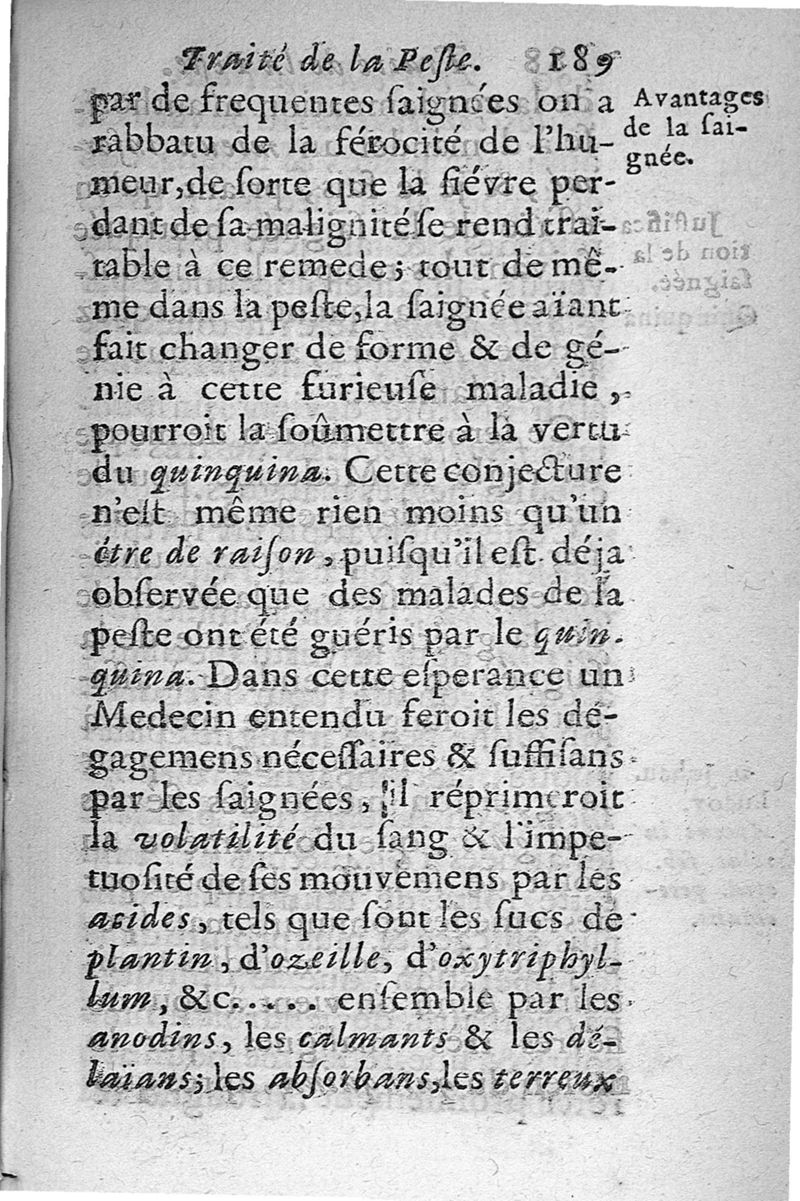 Traité de la Peſte. 189
par de frequentes ſaignées on a
rabbatu de la férocité de l'hu-
meur, de ſorte que la fiévre per-
dant de ſa malignité ſe rend trai-
table à ce remede; tout de mê-
me dans la peſte, la ſaignée aïant
fait changer de forme & de gé-
nie à cette furieuſe maladie,
pourroit la ſoûmettre à la vertu
du quinquina. Cette conjecture
n'eſt même rien moins qu'un
étre de raiſon, puiſqu'il eſt déja
obſervée que des malades de la
peſte ont été guéris par le quin-
quina. Dans cette eſperance un
Medecin entendu feroit les dé-
gagemens néceſſaires & ſuffiſans
par les ſaignées, il réprimeroit
la volatilité du ſang & l'impe-
tuoſité de ſes mouvemens par les
acides, tels que ſont les ſucs de
plantin, d'ozeille, d'oxytriphyl-
lum, &c..... enſemble par les
anodins, les calmants & les dé-
laïans; les abſorbans, les terreux
Avantages
de la ſai-
gnée.